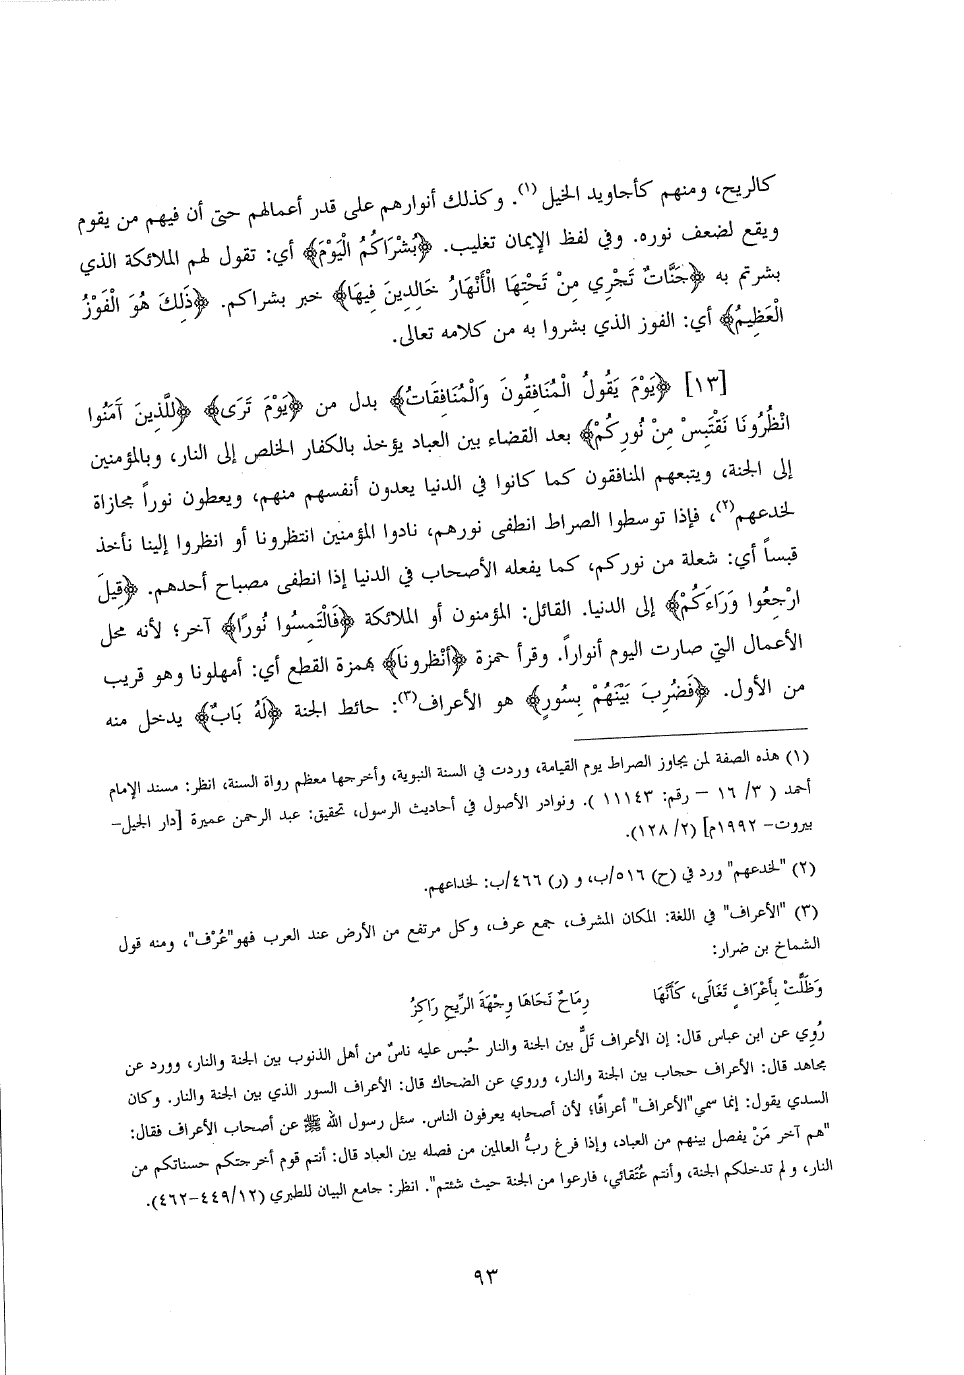 كالريح، ومنهم كأجاويد الخيل (١). وكذلك أنوارهم على قدر أعمالهم حتى أن فيهم من يقوم
ويقع لضعف نوره. وفي لفظ الإيمان تغليب. ﴿بُشْرَاكُمُ الْيَوْمَ﴾ أي: تقول لهم الملائكة الذي
بشرتم به ﴿جَنَّاتٌ تَجْرِي مِنْ تَحْتِهَا الْأَنْهَارُ خَالِدِينَ فِيهَا﴾ خبر بشراكم. ﴿ذَلِكَ هُوَ الْفَوْزُ
الْعَظِيمُ﴾ أي: الفوز الذي بشروا به من كلامه تعالى.
[١٣] ﴿يَوْمَ يَقُولُ الْمُنَافِقُونَ وَالْمُنَافِقَاتُ﴾ بدل من ﴿يَوْمَ تَرَى﴾ ﴿لِلَّذِينَ آمَنُوا
انْظُرُونَا نَقْتَبِسْ مِنْ نُورِكُمْ﴾ بعد القضاء بين العباد يؤخذ بالكفار الخلص إلى النار، وبالمؤمنين
إلى الجنة، ويتبعهم المنافقون كما كانوا في الدنيا يعدون أنفسهم منهم، ويعطون نوراً مجازاة
لخدعهم(٢)، فإذا توسطوا الصراط انطفى نورهم، نادوا المؤمنين انتظرونا أو انظروا إلينا نأخذ
قبساً أي: شعلة من نوركم، كما يفعله الأصحاب في الدنيا إذا انطفى مصباح أحدهم. ﴿قِيلَ
ارْجِعُوا وَرَاءَكُمْ﴾ إلى الدنيا. القائل: المؤمنون أو الملائكة ﴿فَالْتَمِسُوا نُورًا﴾ آخر؛ لأنه محل
الأعمال التي صارت اليوم أنواراً. وقرأ حمزة ﴿أَنْظِرونَا﴾ بهمزة القطع أي: أمهلونا وهو قريب
من الأول. ﴿فَضُرِبَ بَيْنَهُمْ بِسُورٍ﴾ هو الأعراف(٣): حائط الجنة ﴿لَهُ بَابٌ﴾ يدخل منه
(١) هذه الصفة لمن يجاوز الصراط يوم القيامة، وردت في السنة النبوية، وأخرجها معظم رواة السنة، انظر: مسند الإمام
أحمد ( ٣/ ١٦ – رقم: ١١١٤٣ ). ونوادر الأصول في أحاديث الرسول، تحقيق: عبد الرحمن عميرة [دار الجيل–
بيروت– ١٩٩٢م] (٢/ ١٢٨).
(٢) "لخدعهم" ورد في (ح) ٥١٦/ب، و (ر) ٤٦٦/ب: لخداعهم.
(٣) "الأعراف" في اللغة: المكان المشرف، جمع عرف، وكل مرتفع من الأرض عند العرب فهو"عُرْف"، ومنه قول
الشماخ بن ضرار:
وَظَلَّتْ بِأَعْرَافٍ تَغَالَى، كَأَنَّهَا رِمَاحٌ نَحَاهَا وِجْهَةَ الرِّيحِ رَاكِزُ
رُوِي عن ابن عباس قال: إن الأعراف تَلٌّ بين الجنة والنار حُبس عليه ناسٌ من أهل الذنوب بين الجنة والنار، وورد عن
مجاهد قال: الأعراف حجاب بين الجنة والنار، وروي عن الضحاك قال: الأعراف السور الذي بين الجنة والنار. وكان
السدي يقول: إنما سمي"الأعراف" أعرافًا؛ لأن أصحابه يعرفون الناس. سئل رسول الله ﷺ عن أصحاب الأعراف فقال:
"هم آخر مَنْ يفصل بينهم من العباد، وإذا فرغ ربُّ العالمين من فصله بين العباد قال: أنتم قوم أخرجتكم حسناتكم من
النار، و لم تدخلكم الجنة، وأنتم عُتَقائي، فارعوا من الجنة حيث شئتم". انظر: جامع البيان للطبري (٤٤٩/١٢–٤٦٢).
٩٣